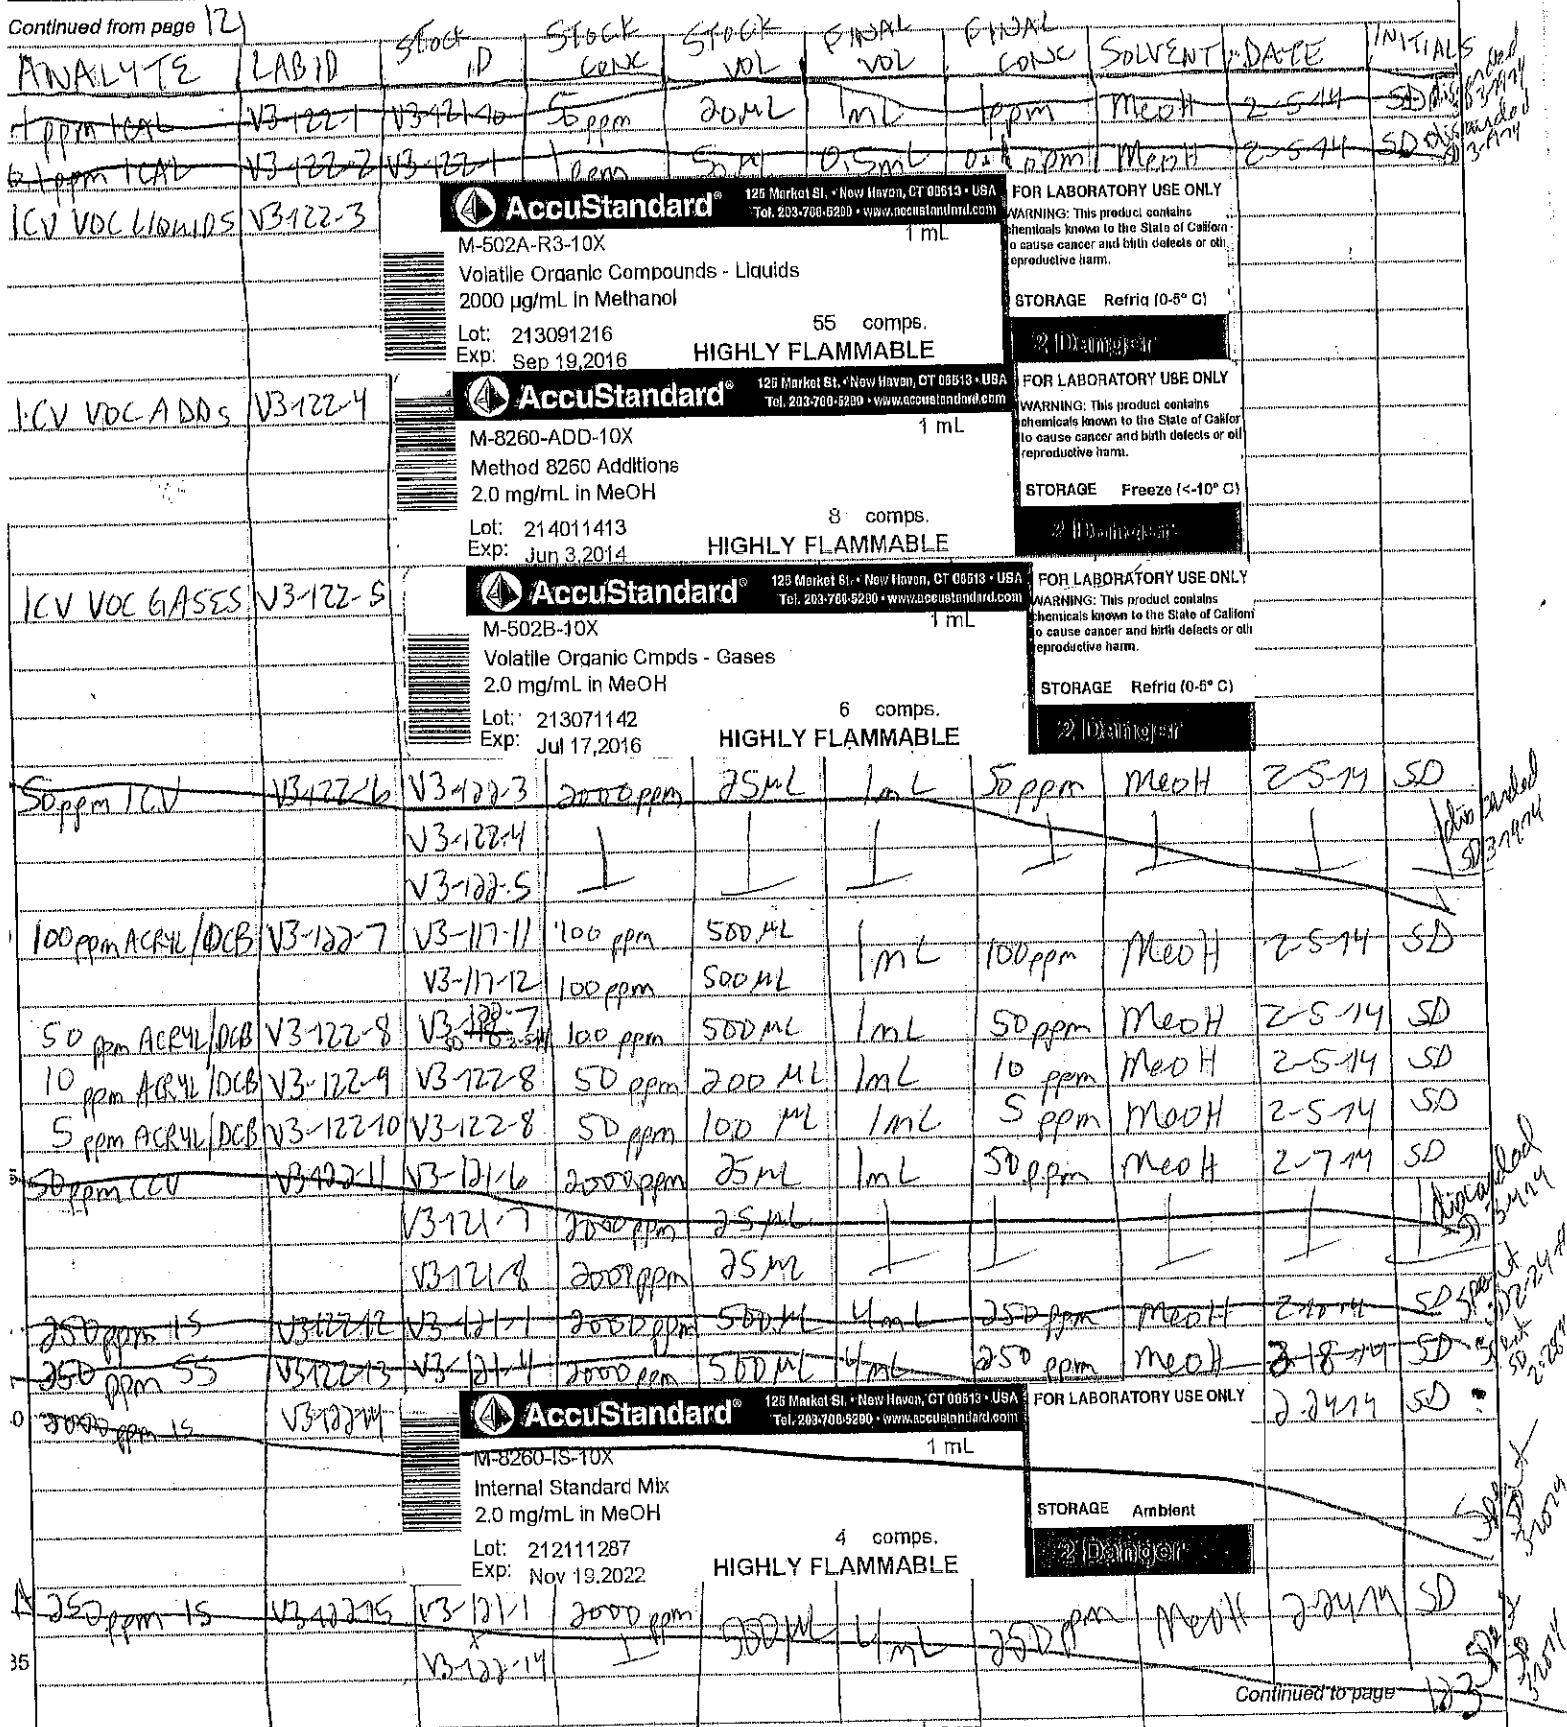 Continued from page 121
ANALYTE LAB ID STOCK ID STOCK CONC STOCK VOL FINAL VOL FINAL CONC SOLVENT DATE INITIALS
1 ppm ICAL V3-122-1 V3-121-10 50 ppm 20 µL 1 mL 1 ppm MeOH 2-5-14 SD discarded
0.1 ppm ICAL V3-122-2 V3-122-1 1 ppm 50 µL 0.5 mL 0.1 ppm MeOH 2-5-14 SD discarded
ICV VOC LIQUIDS V3-122-3
AccuStandard® 125 Market St. • New Haven, CT 06513 • USA
Tel. 203-786-5290 • www.accustandard.com
M-502A-R3-10X 1 mL
Volatile Organic Compounds - Liquids
2000 µg/mL in Methanol
Lot: 213091216 55 comps.
Exp: Sep 19,2016 HIGHLY FLAMMABLE
FOR LABORATORY USE ONLY
WARNING: This product contains
chemicals known to the State of Californ
o cause cancer and birth defects or oth
eproductive harm.
STORAGE Refrig (0-5° C)
2 Danger
ICV VOC ADDs V3-122-4
AccuStandard® 125 Market St. • New Haven, CT 06513 • USA
Tel. 203-786-5290 • www.accustandard.com
M-8260-ADD-10X 1 mL
Method 8260 Additions
2.0 mg/mL in MeOH
Lot: 214011413 8 comps.
Exp: Jun 3,2014 HIGHLY FLAMMABLE
FOR LABORATORY USE ONLY
WARNING: This product contains
chemicals known to the State of Califor
to cause cancer and birth defects or otl
reproductive harm.
STORAGE Freeze (<-10° C)
2 Danger
ICV VOC GASES V3-122-5
AccuStandard® 125 Market St. • New Haven, CT 06513 • USA
Tel. 203-786-5290 • www.accustandard.com
M-502B-10X 1 mL
Volatile Organic Cmpds - Gases
2.0 mg/mL in MeOH
Lot: 213071142 6 comps.
Exp: Jul 17,2016 HIGHLY FLAMMABLE
FOR LABORATORY USE ONLY
WARNING: This product contains
chemicals known to the State of Californi
o cause cancer and birth defects or oth
eproductive harm.
STORAGE Refrig (0-5° C)
2 Danger
50 ppm ICV V3-122-6 V3-122-3 2000 ppm 25 µL 1 mL 50 ppm MeOH 2-5-14 SD
V3-122-4 discarded
V3-122-5
100 ppm ACRYL/DCB V3-122-7 V3-117-11 100 ppm 500 µL 1 mL 100 ppm MeOH 2-5-14 SD
V3-117-12 100 ppm 500 µL
50 ppm ACRYL/DCB V3-122-8 V3-122-7 100 ppm 500 µL 1 mL 50 ppm MeOH 2-5-14 SD
10 ppm ACRYL/DCB V3-122-9 V3-122-8 50 ppm 200 µL 1 mL 10 ppm MeOH 2-5-14 SD
5 ppm ACRYL/DCB V3-122-10 V3-122-8 50 ppm 100 µL 1 mL 5 ppm MeOH 2-5-14 SD
50 ppm CCV V3-122-11 V3-121-6 2000 ppm 25 µL 1 mL 50 ppm MeOH 2-7-14 SD
V3-121-7 2000 ppm 25 µL discarded SD 3-4-14
V3-121-8 2000 ppm 25 µL
250 ppm IS V3-122-12 V3-121-1 2000 ppm 500 µL 4 mL 250 ppm MeOH SD spent SD 2-24-14
250 ppm SS V3-122-13 V3-121-4 2000 ppm 500 µL 4 mL 250 ppm MeOH 2-18-14 SD spent
2000 ppm IS V3-122-14 2-24-14 SD
AccuStandard® 125 Market St. • New Haven, CT 06513 • USA
Tel. 203-786-5290 • www.accustandard.com
M-8260-IS-10X 1 mL
Internal Standard Mix
2.0 mg/mL in MeOH
Lot: 212111287 4 comps.
Exp: Nov 19,2022 HIGHLY FLAMMABLE
FOR LABORATORY USE ONLY
STORAGE Ambient
2 Danger
Spent SD
250 ppm IS V3-122-15 V3-121-1 2000 ppm 500 µL 4 mL 250 ppm MeOH 2-24-14 SD
V3-122-14 Spent SD
35
Continued to page 123